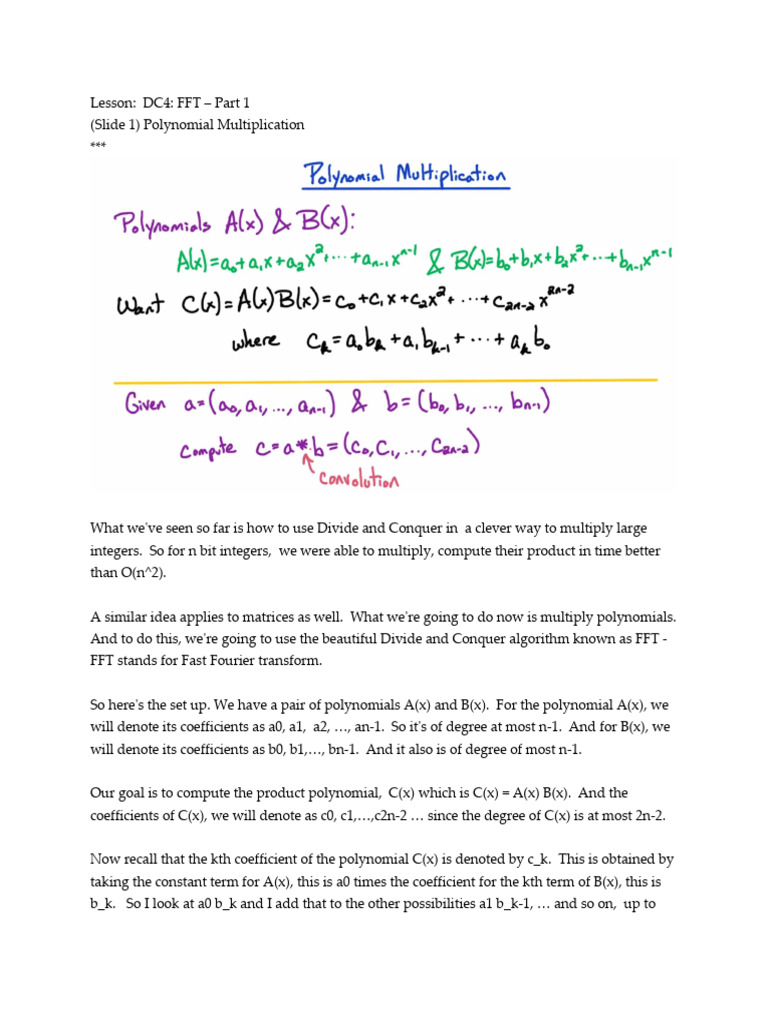 Lesson:  DC4: FFT – Part 1
(Slide 1) Polynomial Multiplication
***
Polynomial Multiplication
Polynomials A(x) & B(x):
A(x)=a₀+a₁x+a₂x²+⋯+aₙ₋₁xⁿ⁻¹ & B(x)=b₀+b₁x+b₂x²+⋯+bₙ₋₁xⁿ⁻¹
Want C(x)=A(x)B(x)=c₀+c₁x+c₂x²+⋯+c₂ₙ₋₂x²ⁿ⁻²
where cₖ=a₀bₖ+a₁bₖ₋₁+⋯+aₖb₀
Given a=(a₀,a₁,...,aₙ₋₁) & b=(b₀,b₁,...,bₙ₋₁)
Compute c=a*b=(c₀,c₁,...,c₂ₙ₋₂)
convolution
What we've seen so far is how to use Divide and Conquer in  a clever way to multiply large
integers.  So for n bit integers,  we were able to multiply, compute their product in time better
than O(n^2).
A similar idea applies to matrices as well.  What we're going to do now is multiply polynomials.
And to do this, we're going to use the beautiful Divide and Conquer algorithm known as FFT -
FFT stands for Fast Fourier transform.
So here's the set up. We have a pair of polynomials A(x) and B(x).  For the polynomial A(x), we
will denote its coefficients as a0, a1,  a2, …, an-1.  So it's of degree at most n-1.  And for B(x), we
will denote its coefficients as b0, b1,…, bn-1.  And it also is of degree of most n-1.
Our goal is to compute the product polynomial,  C(x) which is C(x) = A(x) B(x).  And the
coefficients of C(x), we will denote as c0, c1,…,c2n-2 … since the degree of C(x) is at most 2n-2.
Now recall that the kth coefficient of the polynomial C(x) is denoted by c_k.  This is obtained by
taking the constant term for A(x), this is a0 times the coefficient for the kth term of B(x), this is
b_k.   So I look at a0 b_k and I add that to the other possibilities a1 b_k-1, … and so on,  up to